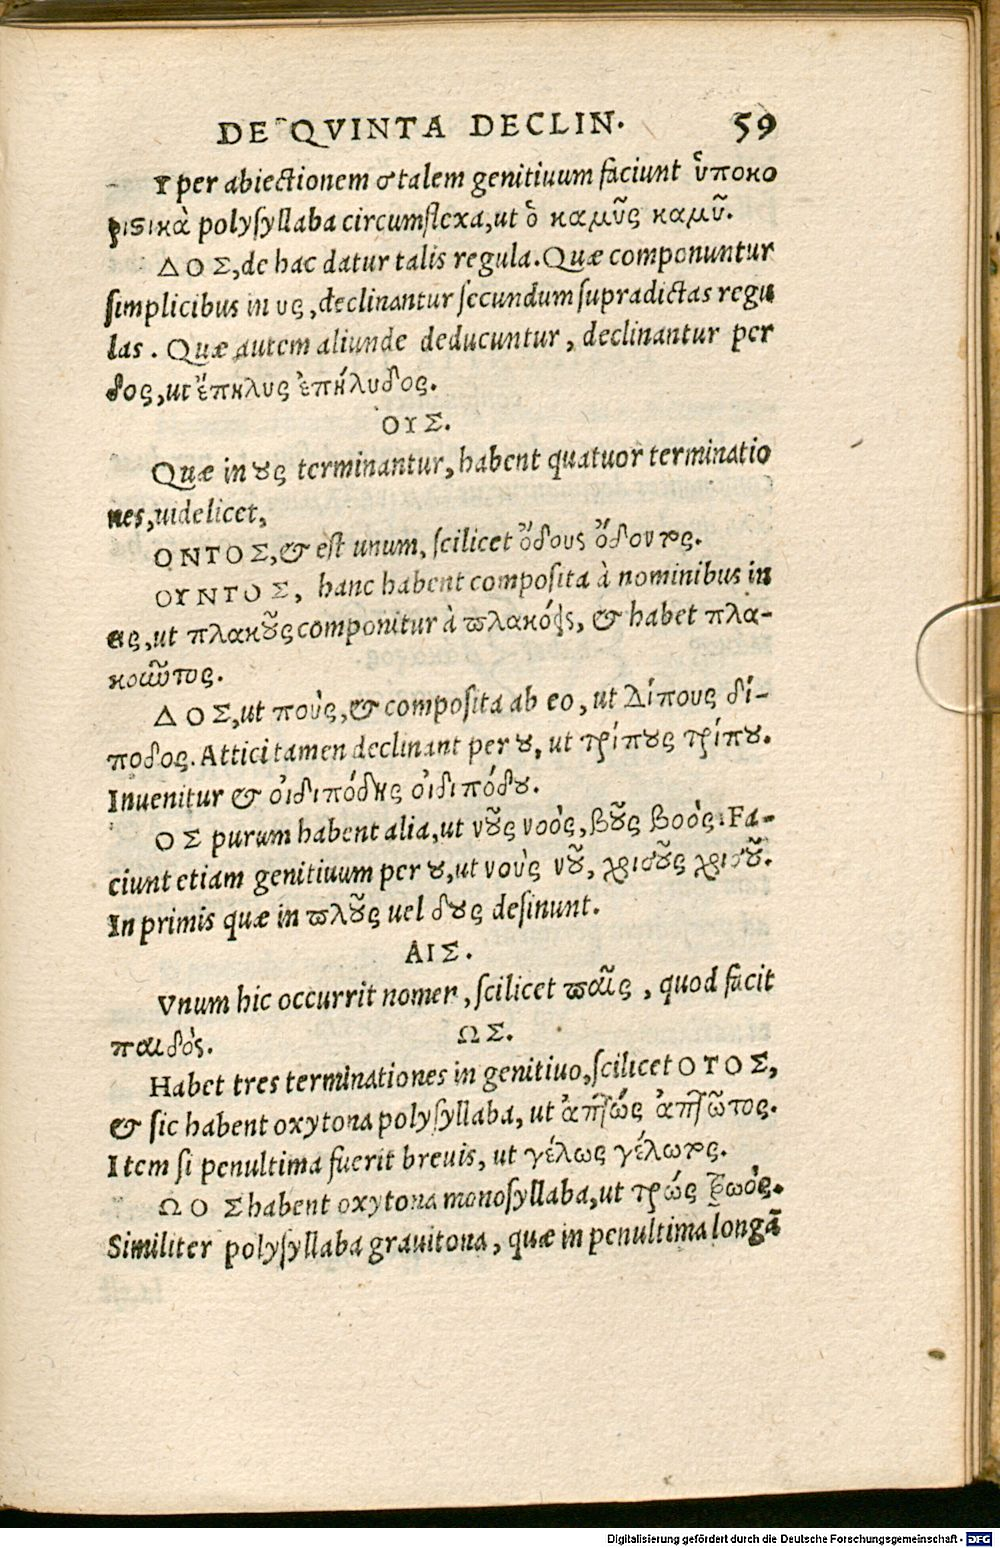 DE QVINTA DECLIN. 59
Υ per abiectionem σ talem genitiuum faciunt ὑποκο
ριϛικὰ polysyllaba circumflexa, ut ὁ καμῦς καμῦ.
ΔΟΣ, de hac datur talis regula. Quæ componuntur
simplicibus in υς, declinantur secundum supradictas regu
las. Quæ autem aliunde deducuntur, declinantur per
δος, ut ἔπηλυς ἐπήλυδος.
ΟΥΣ.
Quæ in ȣς terminantur, habent quatuor terminatio
nes, uidelicet,
ΟΝΤΟΣ, & est unum, scilicet ὄδους ὄδοντος.
ΟΥΝΤΟΣ, hanc habent composita à nominibus in
εις, ut πλακȣ͂ς componitur à πλακόεις, & habet πλα-
κοῦντος.
ΔΟΣ, ut ποὺς, & composita ab eo, ut Δίπους δί-
ποδος. Attici tamen declinant per ȣ, ut τρίπȣς τρίπȣ.
Inuenitur & οἰδιπόδης οἰδιπόδȣ.
ΟΣ purum habent alia, ut νȣ͂ς νοὸς, βȣ͂ς βοὸς. Fa-
ciunt etiam genitiuum per ȣ, ut νοὺς νȣ͂, χρισȣ͂ς χρισȣ͂.
In primis quæ in πλȣ͂ς uel δȣς desinunt.
ΑΙΣ.
Vnum hic occurrit nomen, scilicet παῖς, quod facit
παιδὸς.
ΩΣ.
Habet tres terminationes in genitiuo, scilicet ΟΤΟΣ,
& sic habent oxytona polysyllaba, ut
Item si penultima fuerit breuis, ut γέλως γέλωτος.
ΩΟΣ habent oxytona monosyllaba, ut τρώς τρωὸς.
Similiter polysyllaba grauitona, quæ in penultima longā
Digitalisierung gefördert durch die Deutsche Forschungsgemeinschaft - DFG